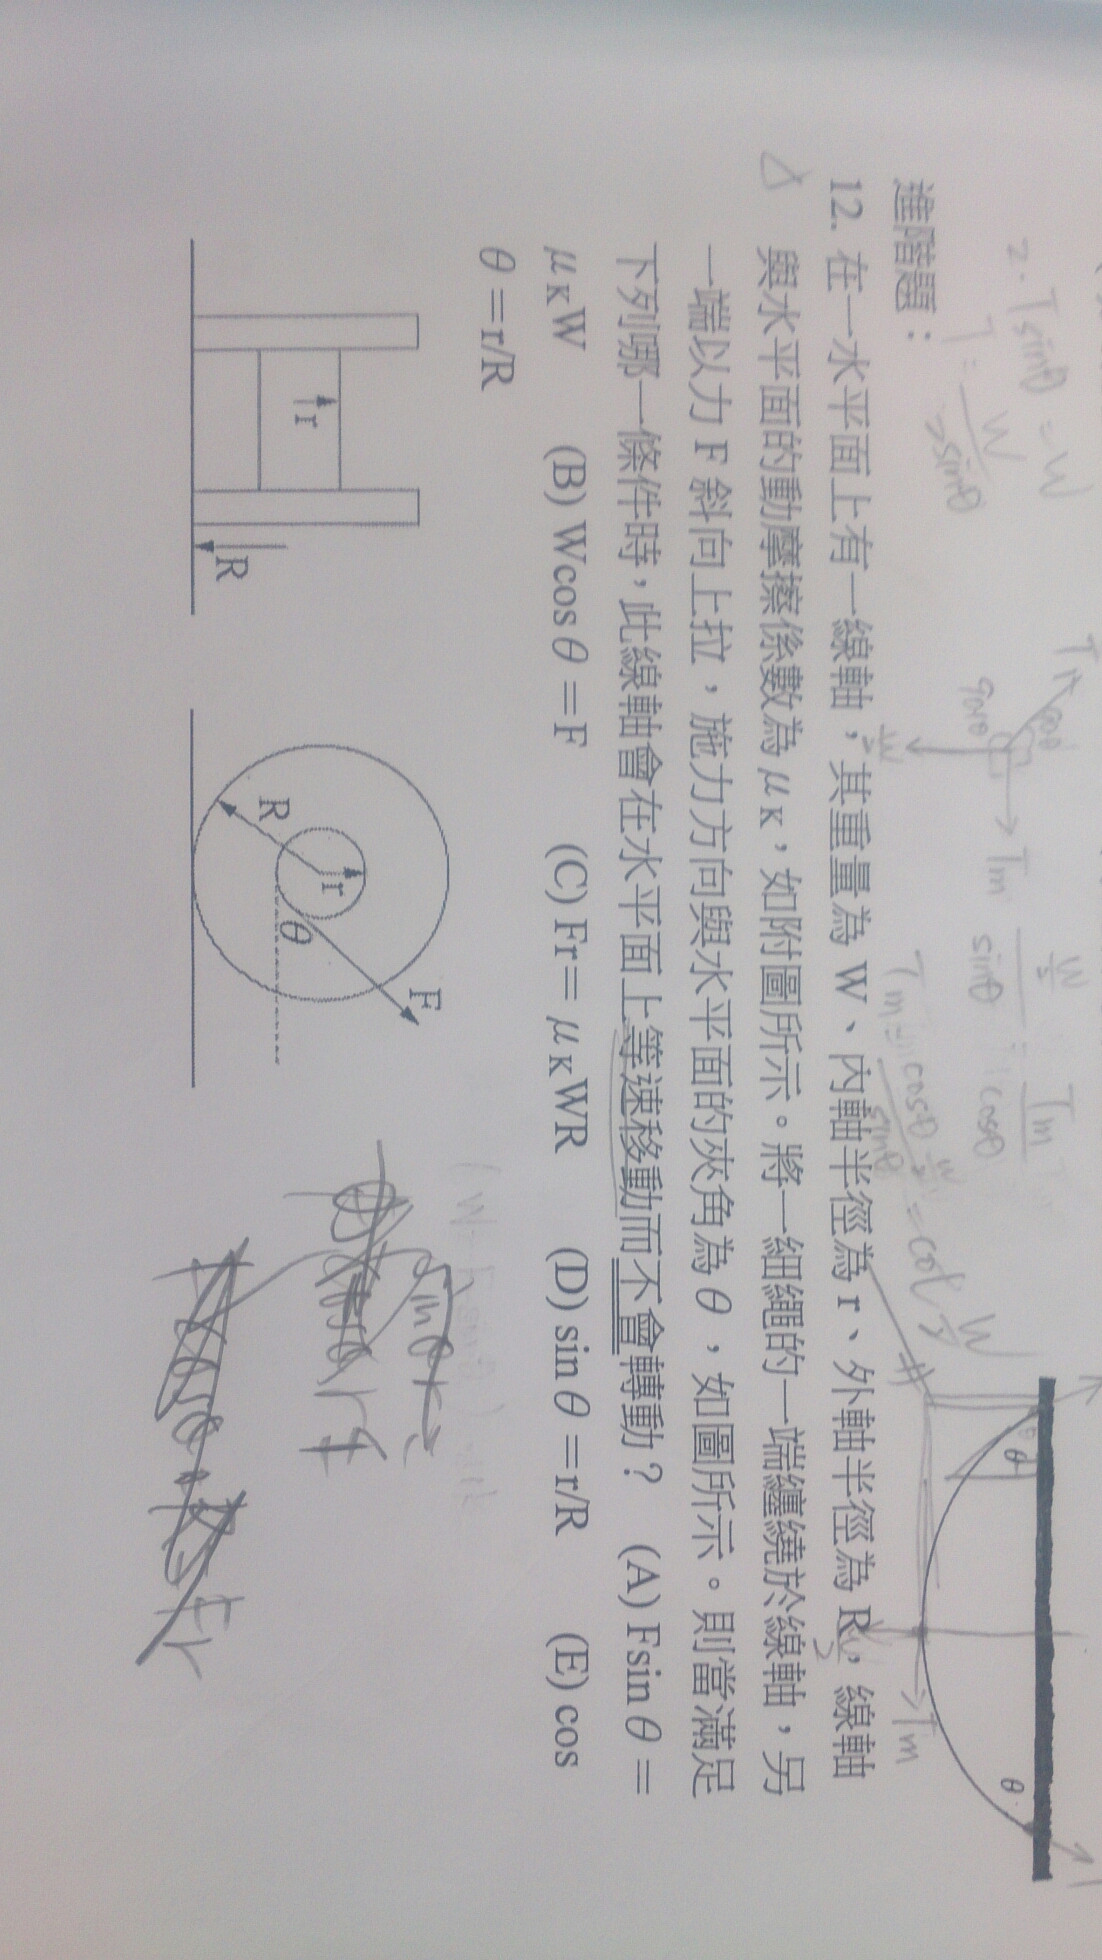 進階題：
12. 在一水平面上有一線軸，其重量為 W、內軸半徑為 r、外軸半徑為 R，線軸
與水平面的動摩擦係數為 μK，如附圖所示。將一細繩的一端纏繞於線軸，另
一端以力 F 斜向上拉，施力方向與水平面的夾角為 θ，如圖所示。則當滿足
下列哪一條件時，此線軸會在水平面上等速移動而不會轉動？ (A) Fsinθ＝
μKW (B) Wcosθ＝F (C) Fr＝μKWR (D) sinθ＝r/R (E) cos
θ＝r/R
r
R
R
r
θ
F
θ
θ
2. Tsinθ = W
Tm
Tm